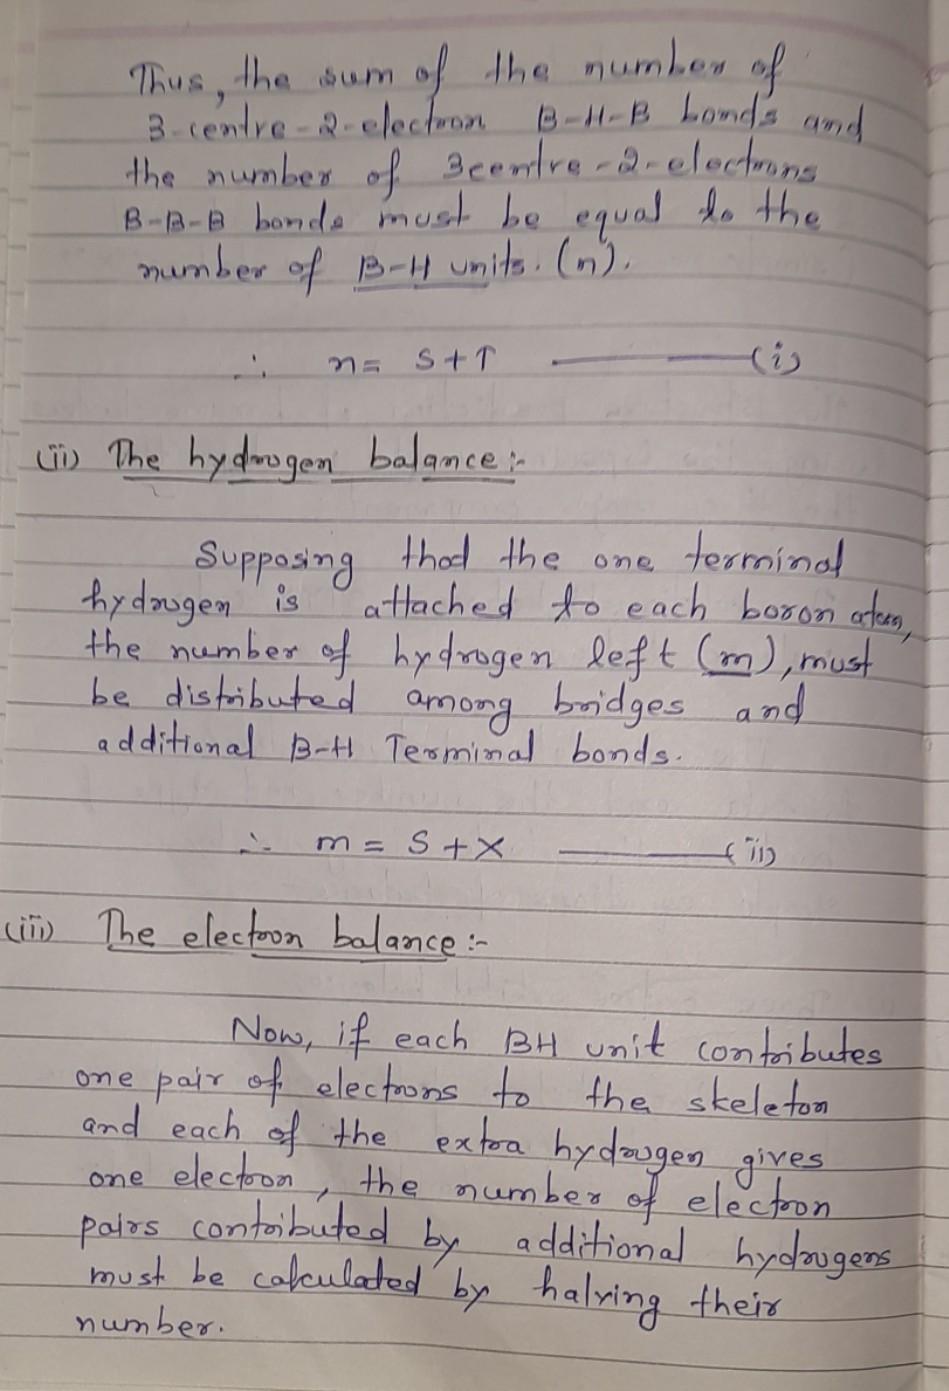 Thus, the sum of the number of
3-centre-2-electron B-H-B bonds and
the number of 3centre-2-electrons
B-B-B bonds must be equal to the
number of B-H units. (n).
∴ n = S+T ——— (i)
(ii) The hydrogen balance:-
Supposing that the one terminal
hydrogen is attached to each boron atom,
the number of hydrogen left (m), must
be distributed among bridges and
additional B-H Terminal bonds.
∴ m = S + X ——— (ii)
(iii) The electron balance:-
Now, if each BH unit contributes
one pair of electrons to the skeleton
and each of the extra hydrogen gives
one electron, the number of electron
pairs contributed by additional hydrogens
must be calculated by halving their
number.